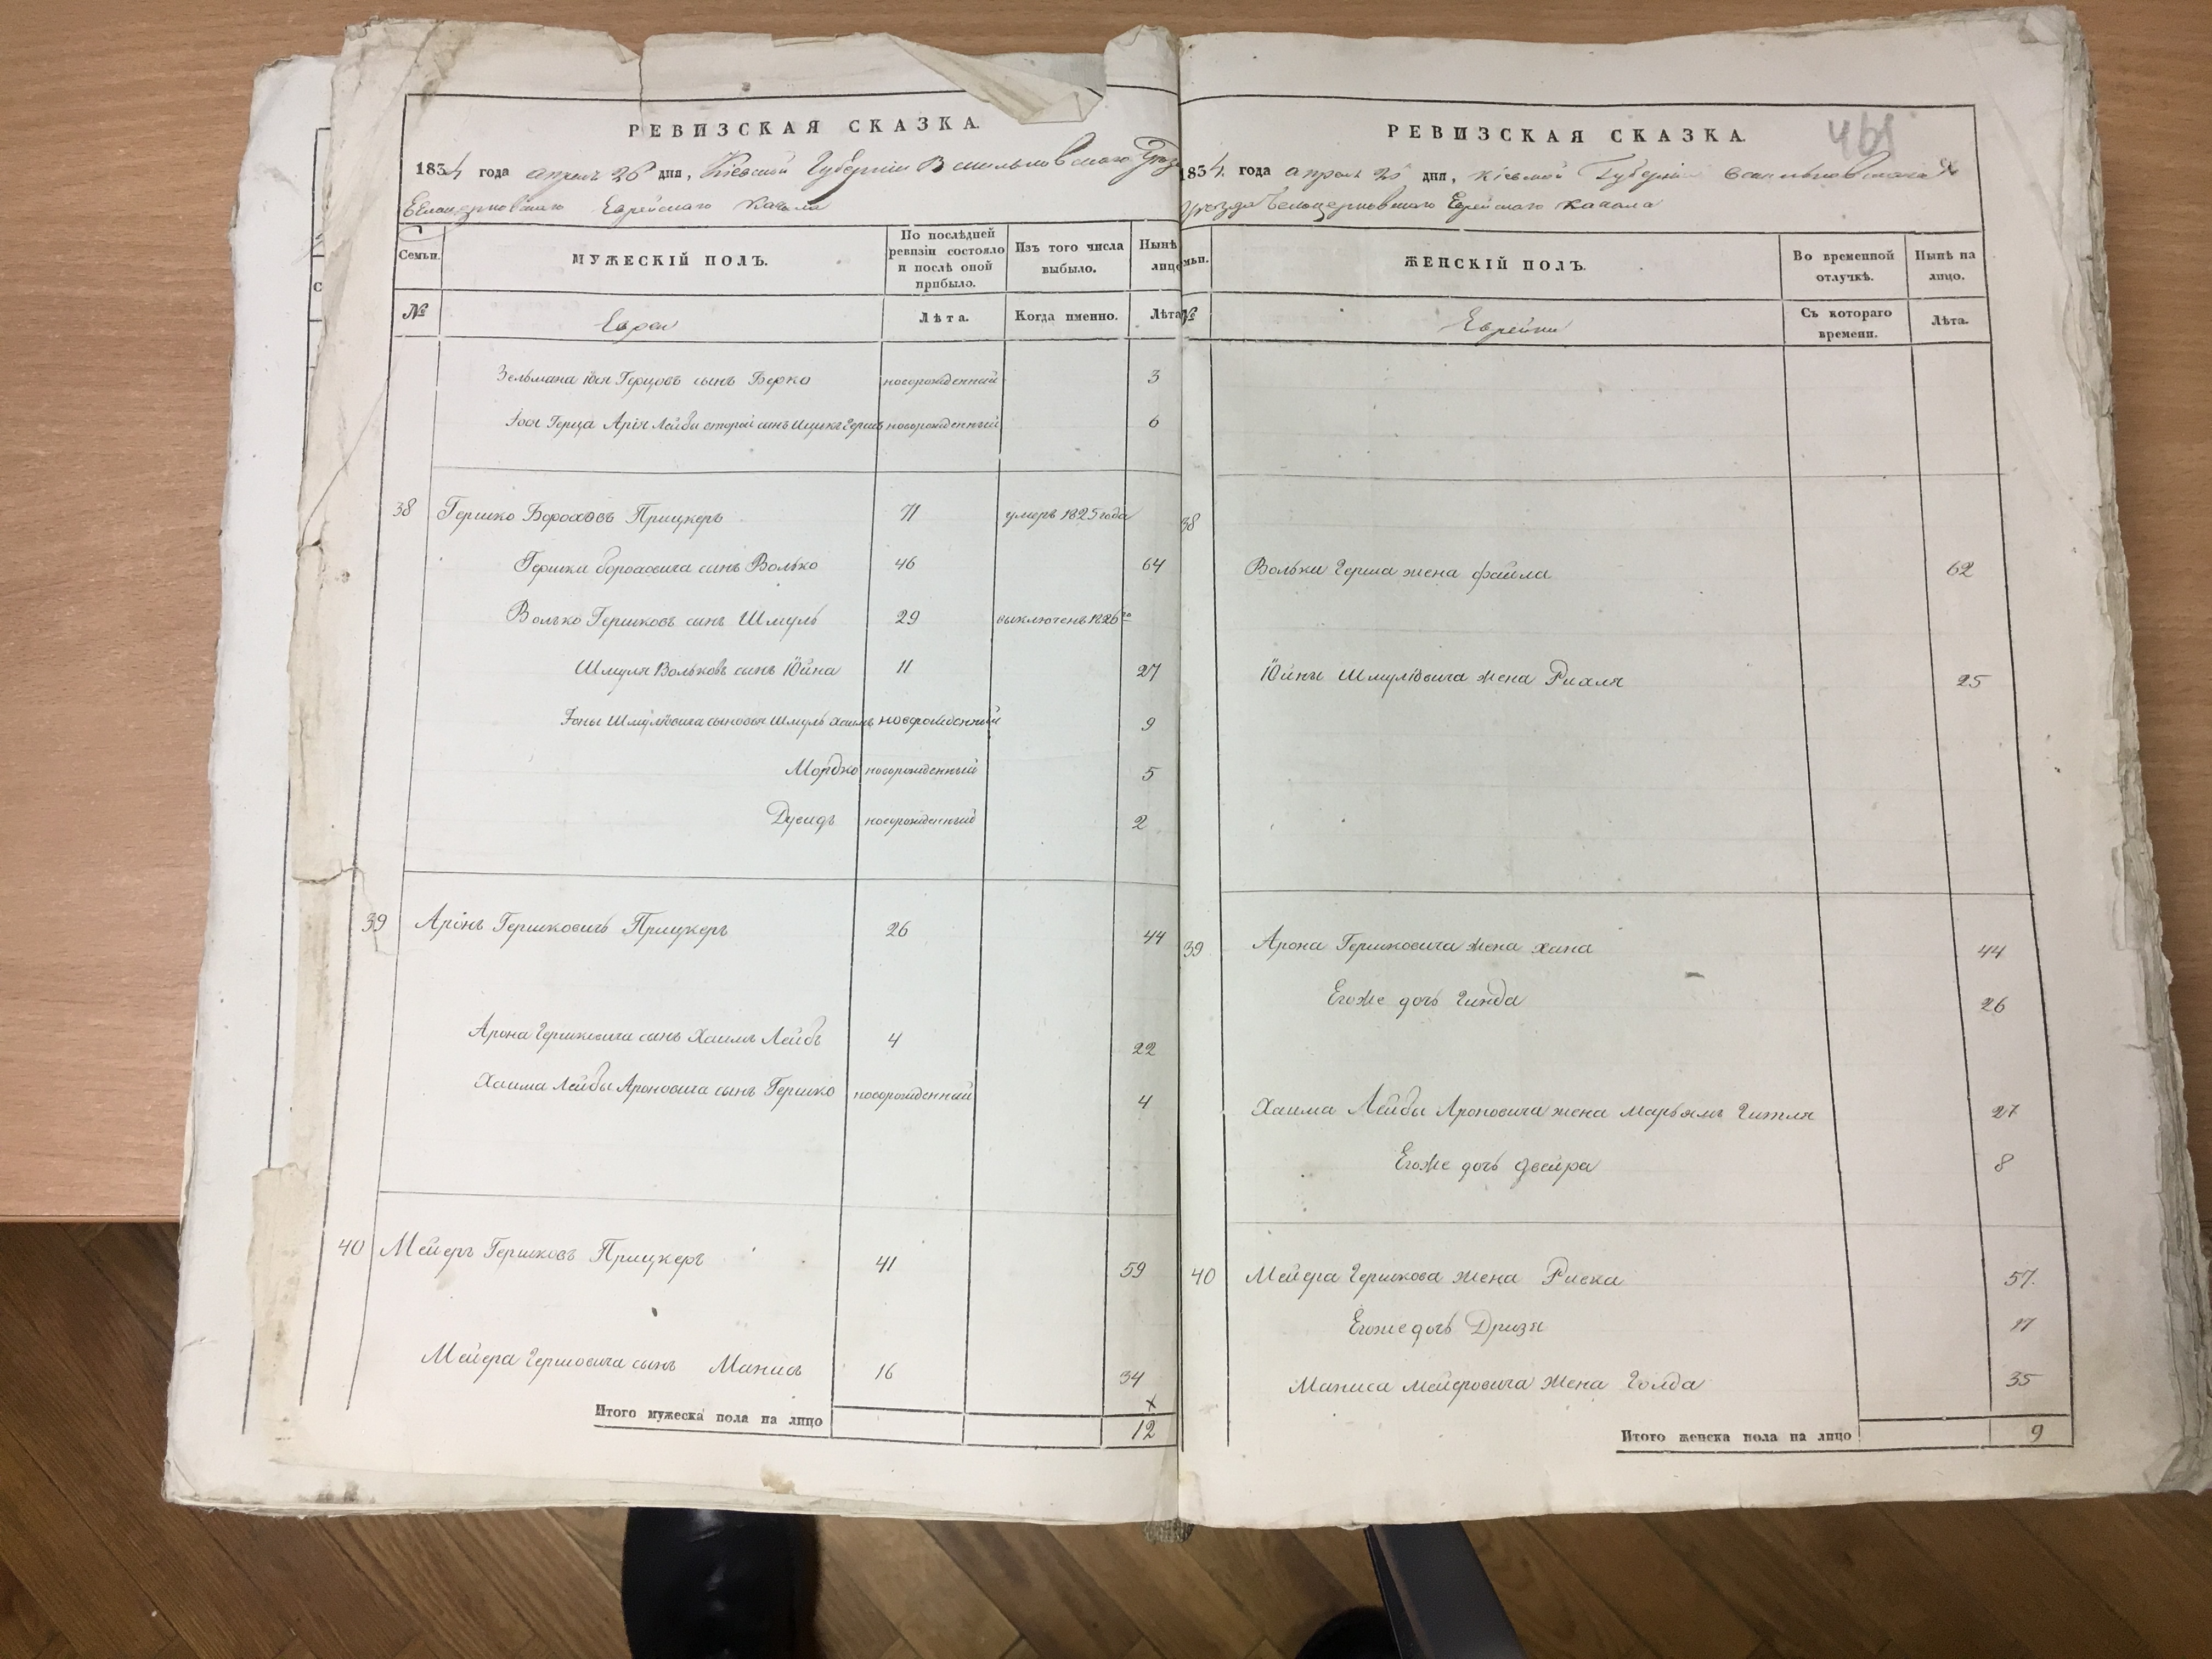 РЕВИЗСКАЯ СКАЗКА.
1834 года апреля 26 дня, Кіевской Губерніи Васильковского Уезда
Белоцерковского Еврейского Кагала
Семьи.
МУЖЕСКІЙ ПОЛЪ.
По послѣдней ревизіи состояло и послѣ оной прибыло.
Изъ того числа выбыло.
Нынѣ лицо
№
Евреи
Лѣта.
Когда именно.
Лѣта
Зельмана Іося Герцовъ сынъ Берко новорожденный 3
Іося Герца Арія Лейбы второй сынъ Ицикъ Гершъ новорожденный 6
38 Гершко Бороховъ Прицкеръ 71 умеръ 1825 года
Гершки Бороховича сынъ Волько 46 64
Волько Гершковъ сынъ Шмуль 29 выключенъ 1826го
Шмуля Вольковъ сынъ Іойна 11 27
Іоны Шмулёвича сыновья Шмуль Хаимъ новорожденный 9
Мордко новорожденный 5
Дувидъ новорожденный 2
39 Аронъ Гершковичъ Прицкеръ 26 44
Арона Гершковича сынъ Хаимъ Лейбъ 4 22
Хаима Лейбы Ароновича сынъ Гершко новорожденный 4
40 Мейеръ Гершковъ Прицкеръ 41 59
Мейера Гершовича сынъ Манисъ 16 34
х
Итого мужеска пола на лицо 12
РЕВИЗСКАЯ СКАЗКА.
461
1834 года апреля 25 дня, Кіевской Губерніи Васильковскаго
Уезда Белоцерковского Еврейского Кагала
мьи.
ЖЕНСКІЙ ПОЛЪ.
Во временной отлучкѣ.
Нынѣ на лицо.
№
Еврейки
Съ котораго времени.
Лѣта.
38
Вольки Герша жена Файла 62
Іойны Шмулёвича жена Рихля 25
39 Арона Гершковича жена Хана 44
Егоже дочь Гинда 26
Хаима Лейбы Ароновича жена Марьямъ Гитля 27
Егоже дочь Двейра 8
40 Мейера Гершкова жена Риска 57.
Егоже дочь Дризя 17
Маниса Мейеровича жена Голда 35
Итого женска пола на лицо 9